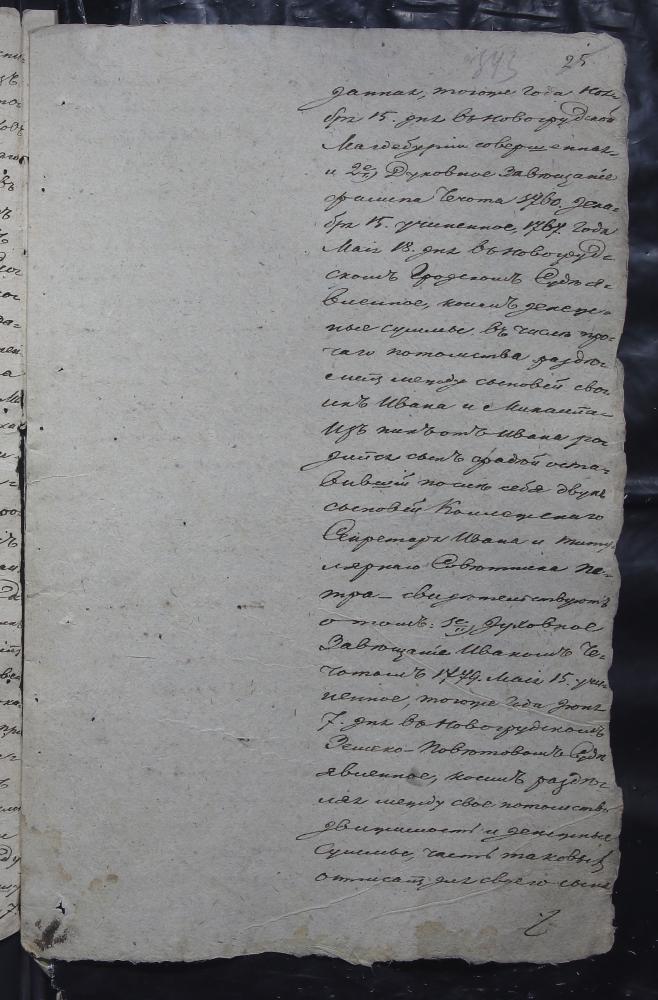 25
данная, тогоже года Ноя-
бря 15. дня въ Новогрудской
Магдебургіи совершенная
и 2е, Духовное Завѣщаніе
Филипа Чечота 1760. дека-
бря 15. учиненное, 1767. года
Маія 18. дня въ Новогруд-
скомъ Гродскомъ Судѣ я-
вленное, коимъ денеж-
ные суммы въ числѣ про-
чаго потомства раздѣ-
лилъ между сыновей сво-
ихъ Ивана и Михаила-
Изъ нихъ отъ Ивана ро-
дился сынъ Фадей оста-
вившій послѣ себя двухъ
сыновей Коллежскаго
Секретаря Ивана и титу-
лярнаго Совѣтника Пе-
тра — свидѣтельствуютъ
о томъ: 1е, Духовное
Завѣщаніе Иваномъ Че-
чотомъ 1779. Маія 15. учи-
ненное, тогоже года Іюня
7. дня въ Новогрудскомъ
Земско-Повѣтовомъ Судѣ
явленное, коимъ раздѣ-
ляя между свое потомство
движимость и денежные
суммы, часть таковых
отписалъ для своего сына